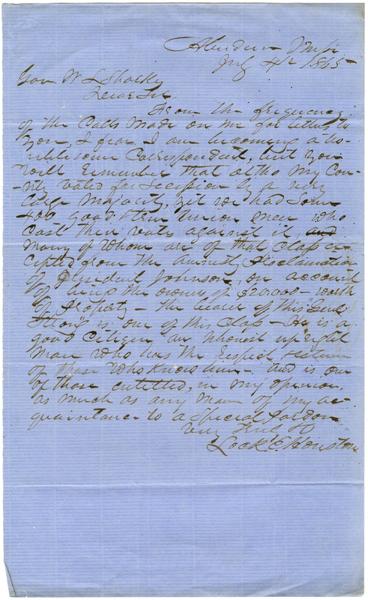 Aberdeen Missi
July 4th 1865
Gov W L Sharkey
Dear Sir
From the frequency
of the Calls made on me for letters to
you, I fear I am becoming a trou-
blesome Correspondent, but you
will remember that altho my Coun-
ty voted for Secession by a very
large majority, yet we had some
400 good & true Union men who
cast their votes against it and
many of whom are of that Class ex-
cepted from the Amnesty Proclamation
of President Johnson, on account
of being the owners of $20000 worth
of property - the bearer of this
is one of this Class - He is a
good Citizen an honest upright
man who has the respect & esteem
of those who know him - and is one
of those entitled, in my opinion
as much as any man of my ac-
quaintance to a special pardon
Very Truly
Lock E. Houston